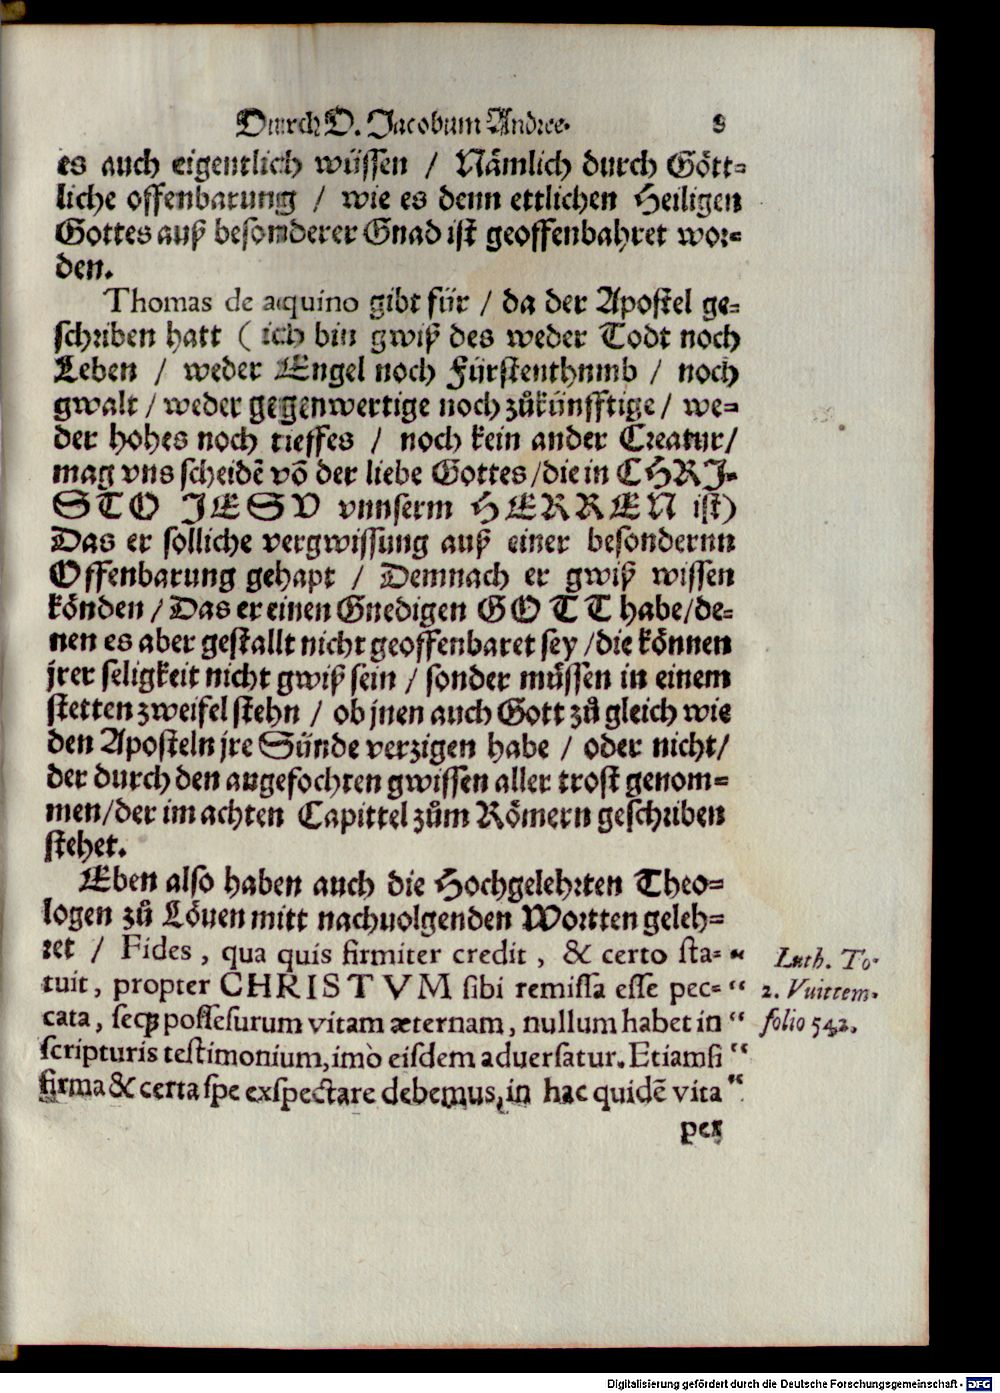 Durch D. Jacobum Andree. 8
es auch eigentlich wüssen / Nämlich durch Gött=
liche offenbarung / wie es denn ettlichen Heiligen
Gottes auß besonderer Gnad ist geoffenbahret wor=
den.
Thomas de aquino gibt für / da der Apostel ge=
schriben hatt ( ich bin gwiß des weder Todt noch
Leben / weder Engel noch Fürstenthumb / noch
gwalt / weder gegenwertige noch zůkünfftige / we=
der hohes noch tieffes / noch kein ander Creatur/
mag vns scheidē vō der liebe Gottes /die in CHRI=
STO JESV vnnserm HERREN ist)
Das er solliche vergwissung auß einer besondernn
Offenbarung gehapt / Demnach er gwiß wissen
könden / Das er einen Gnedigen GOTT habe/de=
nen es aber gestallt nicht geoffenbaret sey /die können
jrer seligkeit nicht gwiß sein / sonder müssen in einem
stetten zweifel stehn / ob jnen auch Gott zů gleich wie
den Aposteln jre Sünde verzigen habe / oder nicht/
der durch den angefochten gwissen aller trost genom=
men/der im achten Capittel zům Römern geschriben
stehet.
Eben also haben auch die Hochgelehrten Theo=
logen zů Löuen mitt nachuolgenden Wortten geleh=
ret / Fides, qua quis firmiter credit, & certo sta= “
tuit, propter CHRISTVM sibi remissa esse pec= “
cata, seqꝫ possesurum vitam æternam, nullum habet in “
scripturis testimonium, imò eisdem aduersatur. Etiamsi “
firma & certa spe exspectare debemus, in hac quidē vita “
per
Luth. To.
2. Vuittem.
folio 542.
Digitalisierung gefördert durch die Deutsche Forschungsgemeinschaft - DFG